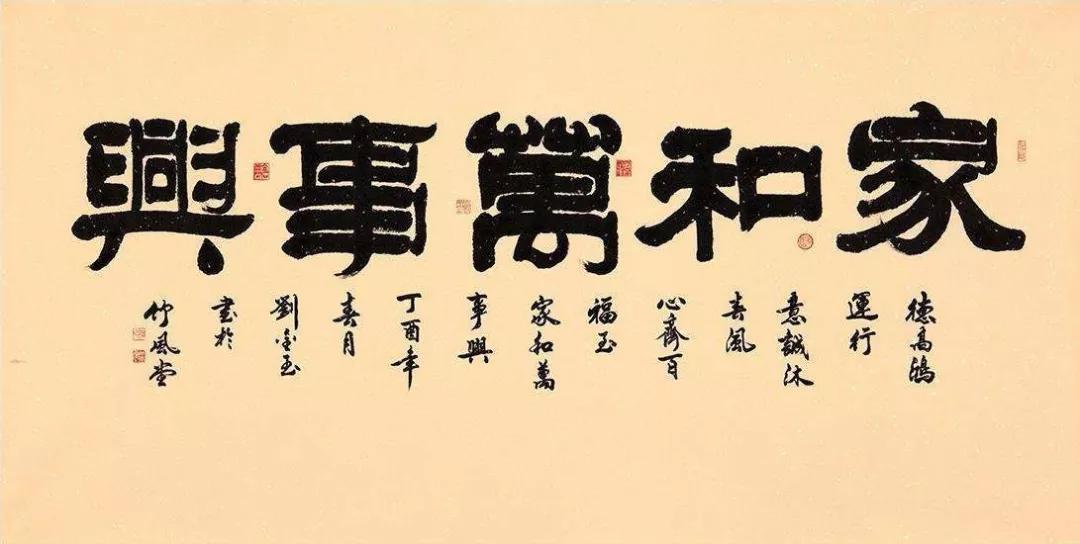 家和萬事興
德高鴻
運行
意誠沐
春風
心齊百
福至
家和萬
事興
丁酉年
春月
劉金玉
書於
竹風堂